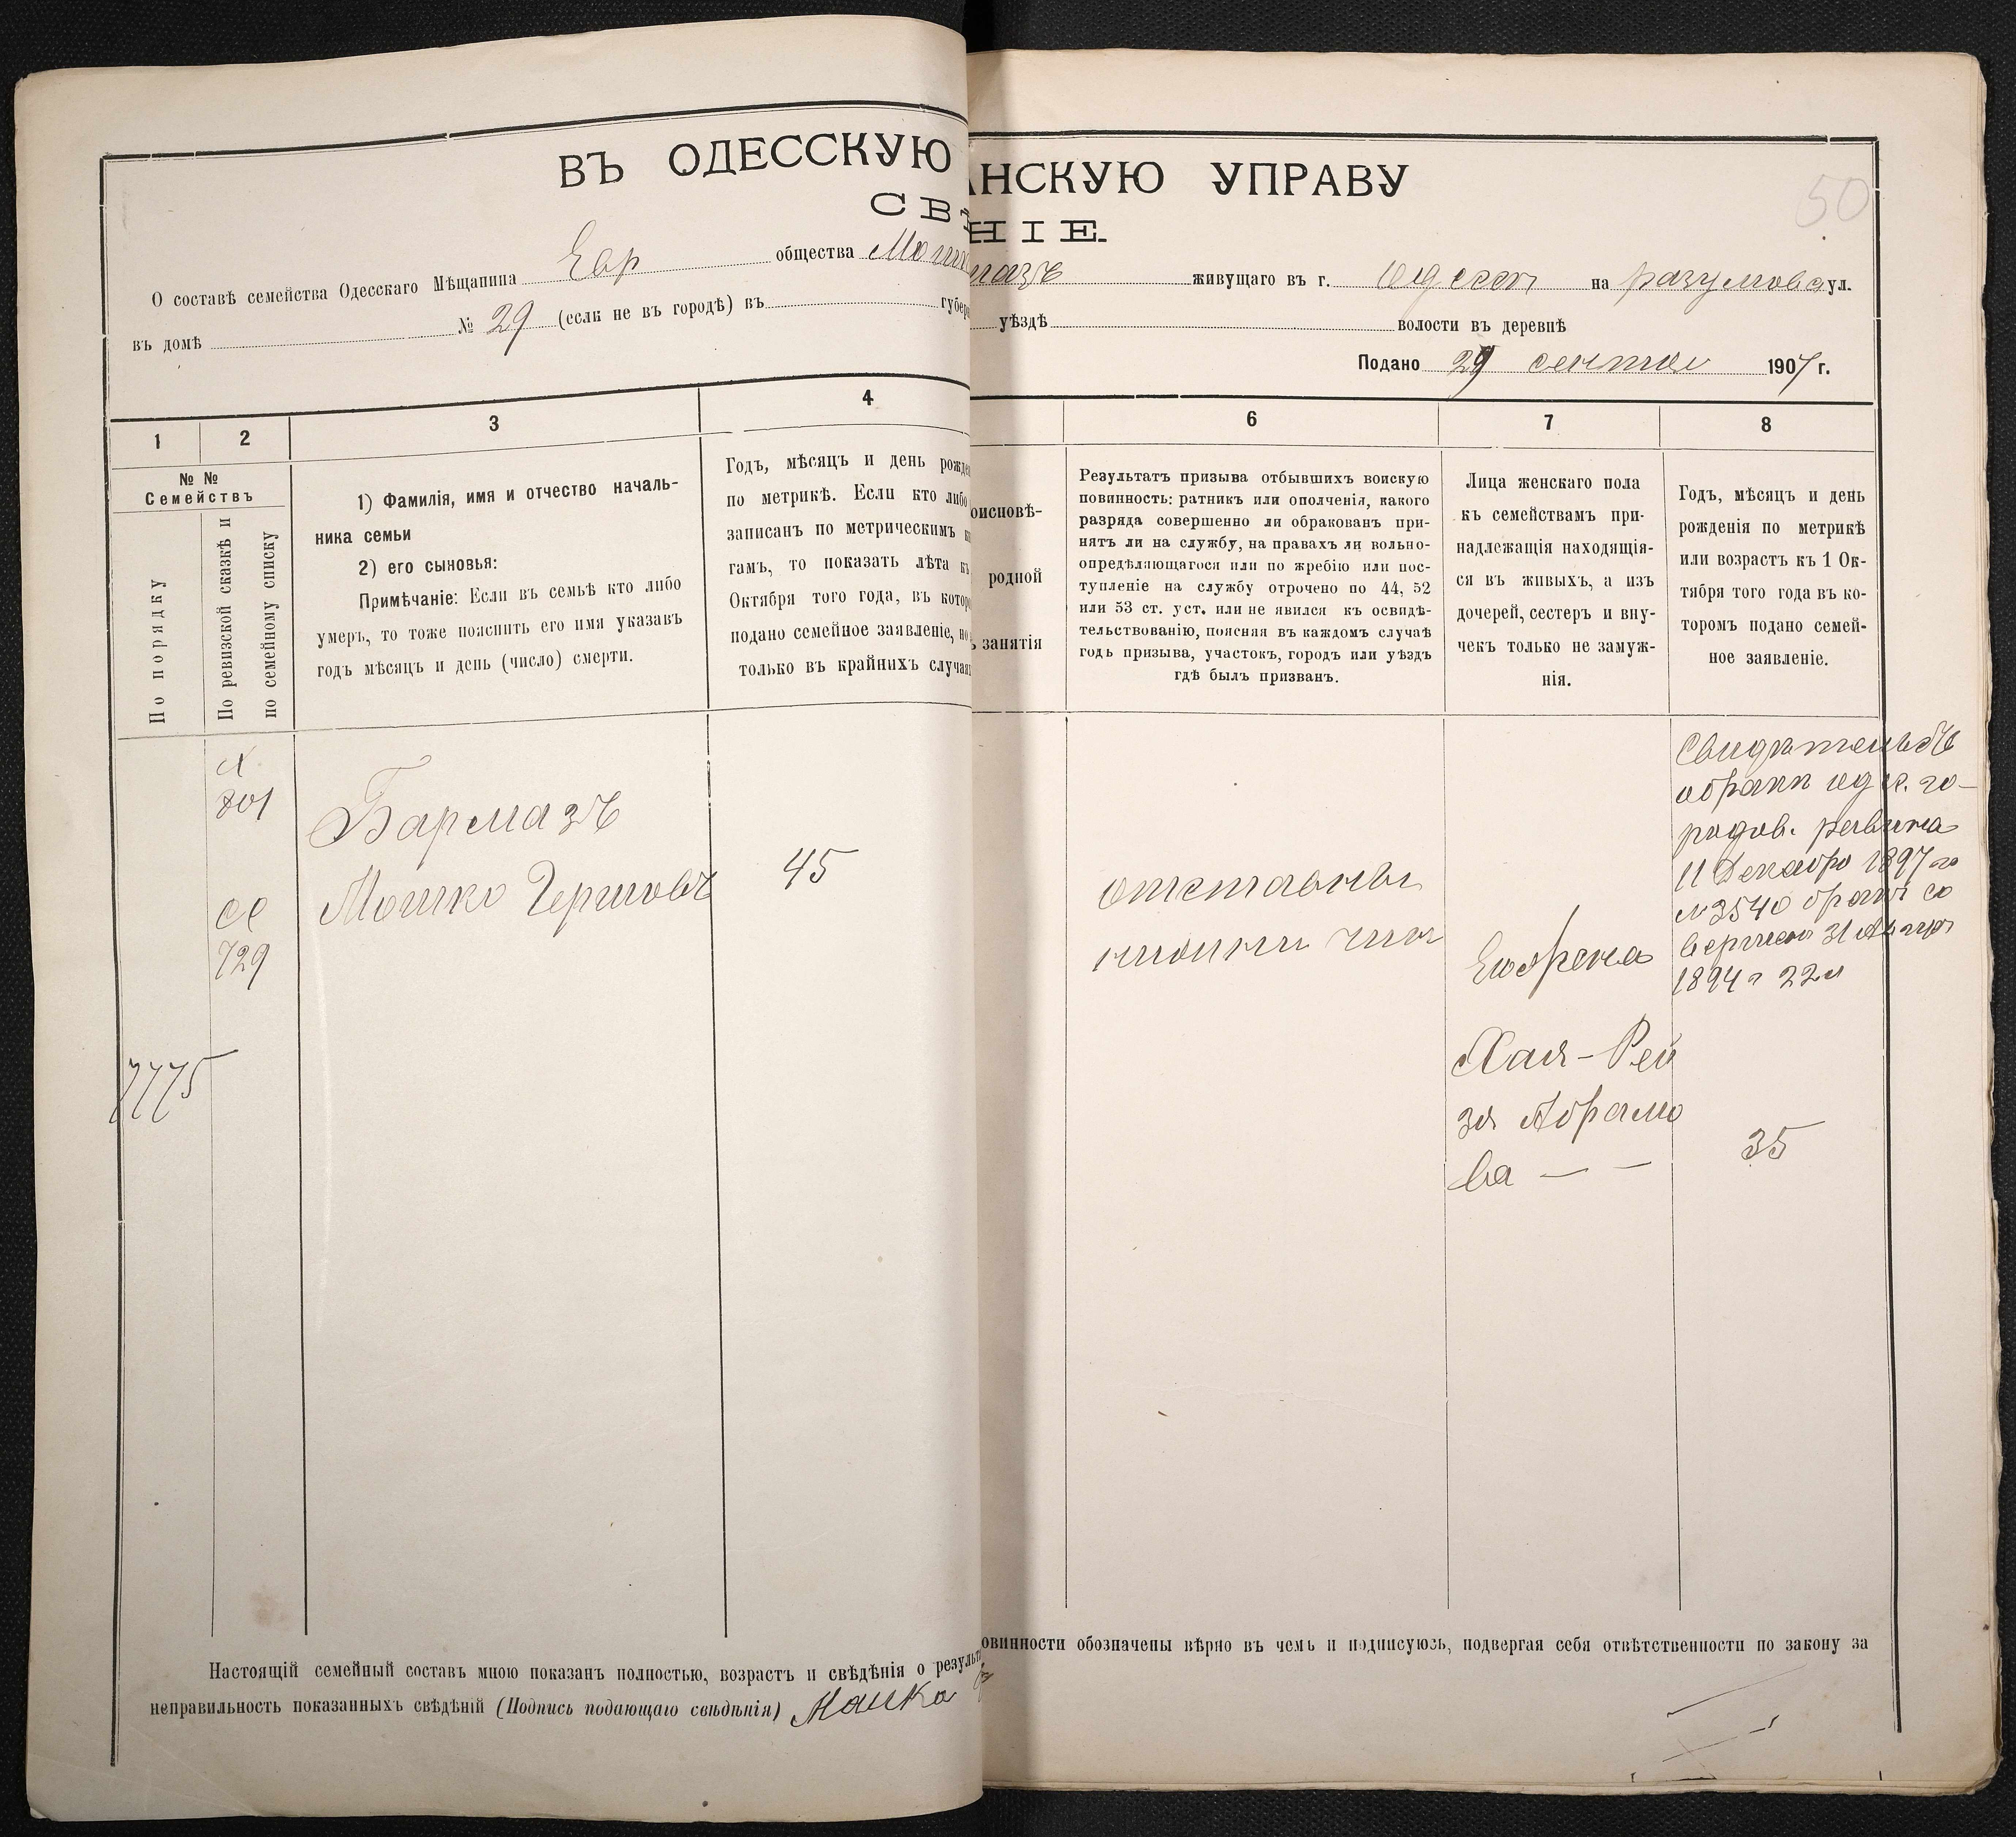 ВЪ ОДЕССКУЮ
АНСКУЮ УПРАВУ
СВѢ
НІЕ.
50
О составѣ семейства Одесскаго Мѣщанина Евр общества Мошк
мазъ живущаго въ г. Одессѣ на разумовс ул.
въ домѣ № 29 (если не въ городѣ) въ губерн
уѣздѣ волости въ деревнѣ
Подано 29 сентяб 1907 г.
1 2 3 4
6 7 8
№ №
Семействъ
По порядку
По ревизской сказкѣ и
по семейному списку
1) Фамилія, имя и отчество началь-
ника семьи
2) его сыновья:
Примѣчаніе: Если въ семьѣ кто либо
умеръ, то тоже пояснить его имя указавъ
годъ мѣсяцъ и день (число) смерти.
Годъ, мѣсяцъ и день рожде
по метрикѣ. Если кто либо
записанъ по метрическимъ кн
гамъ, то показать лѣта къ
Октября того года, въ котор
подано семейное заявленіе, но
только въ крайнихъ случая
оисповѣ-
родной
ъ занятія
Результатъ призыва отбывшихъ воискую
повинность: ратникъ или ополченія, какого
разряда совершенно ли обракованъ при-
нятъ ли на службу, на правахъ ли вольно-
опредѣляющагося или по жребію или пос-
тупленіе на службу отрочено по 44, 52
или 53 ст. уст. или не явился къ освидѣ-
тельствованію, поясняя въ каждомъ случаѣ
годъ призыва, участокъ, городъ или уѣздъ
гдѣ былъ призванъ.
Лица женскаго пола
къ семействамъ при-
надлежащія находящія-
ся въ живыхъ, а изъ
дочерей, сестеръ и вну-
чекъ только не замуж-
нія.
Годъ, мѣсяцъ и день
рожденія по метрикѣ
или возрастъ къ 1 Ок-
тября того года въ ко-
торомъ подано семей-
ное заявленіе.
701
Бармазъ
Мошко Гершовъ
45
729
7775
отставны
нижни чин
Его жена
Хая-Рей
зя Абрамо
ва — —
35
одес. го-
родов. равина
11 Декабря 1897 го
№ 3540 бракъ со
вершенъ 31
1894 г 22 л
Настоящій семейный составъ мною показанъ полностью, возрастъ и свѣдѣнія о результ
овинности обозначены вѣрно въ чемъ и подписуюсь, подвергая себя отвѣтственности по закону за
неправильность показанныхъ свѣдѣній (Подпись подающаго свѣдѣнія) Мошко